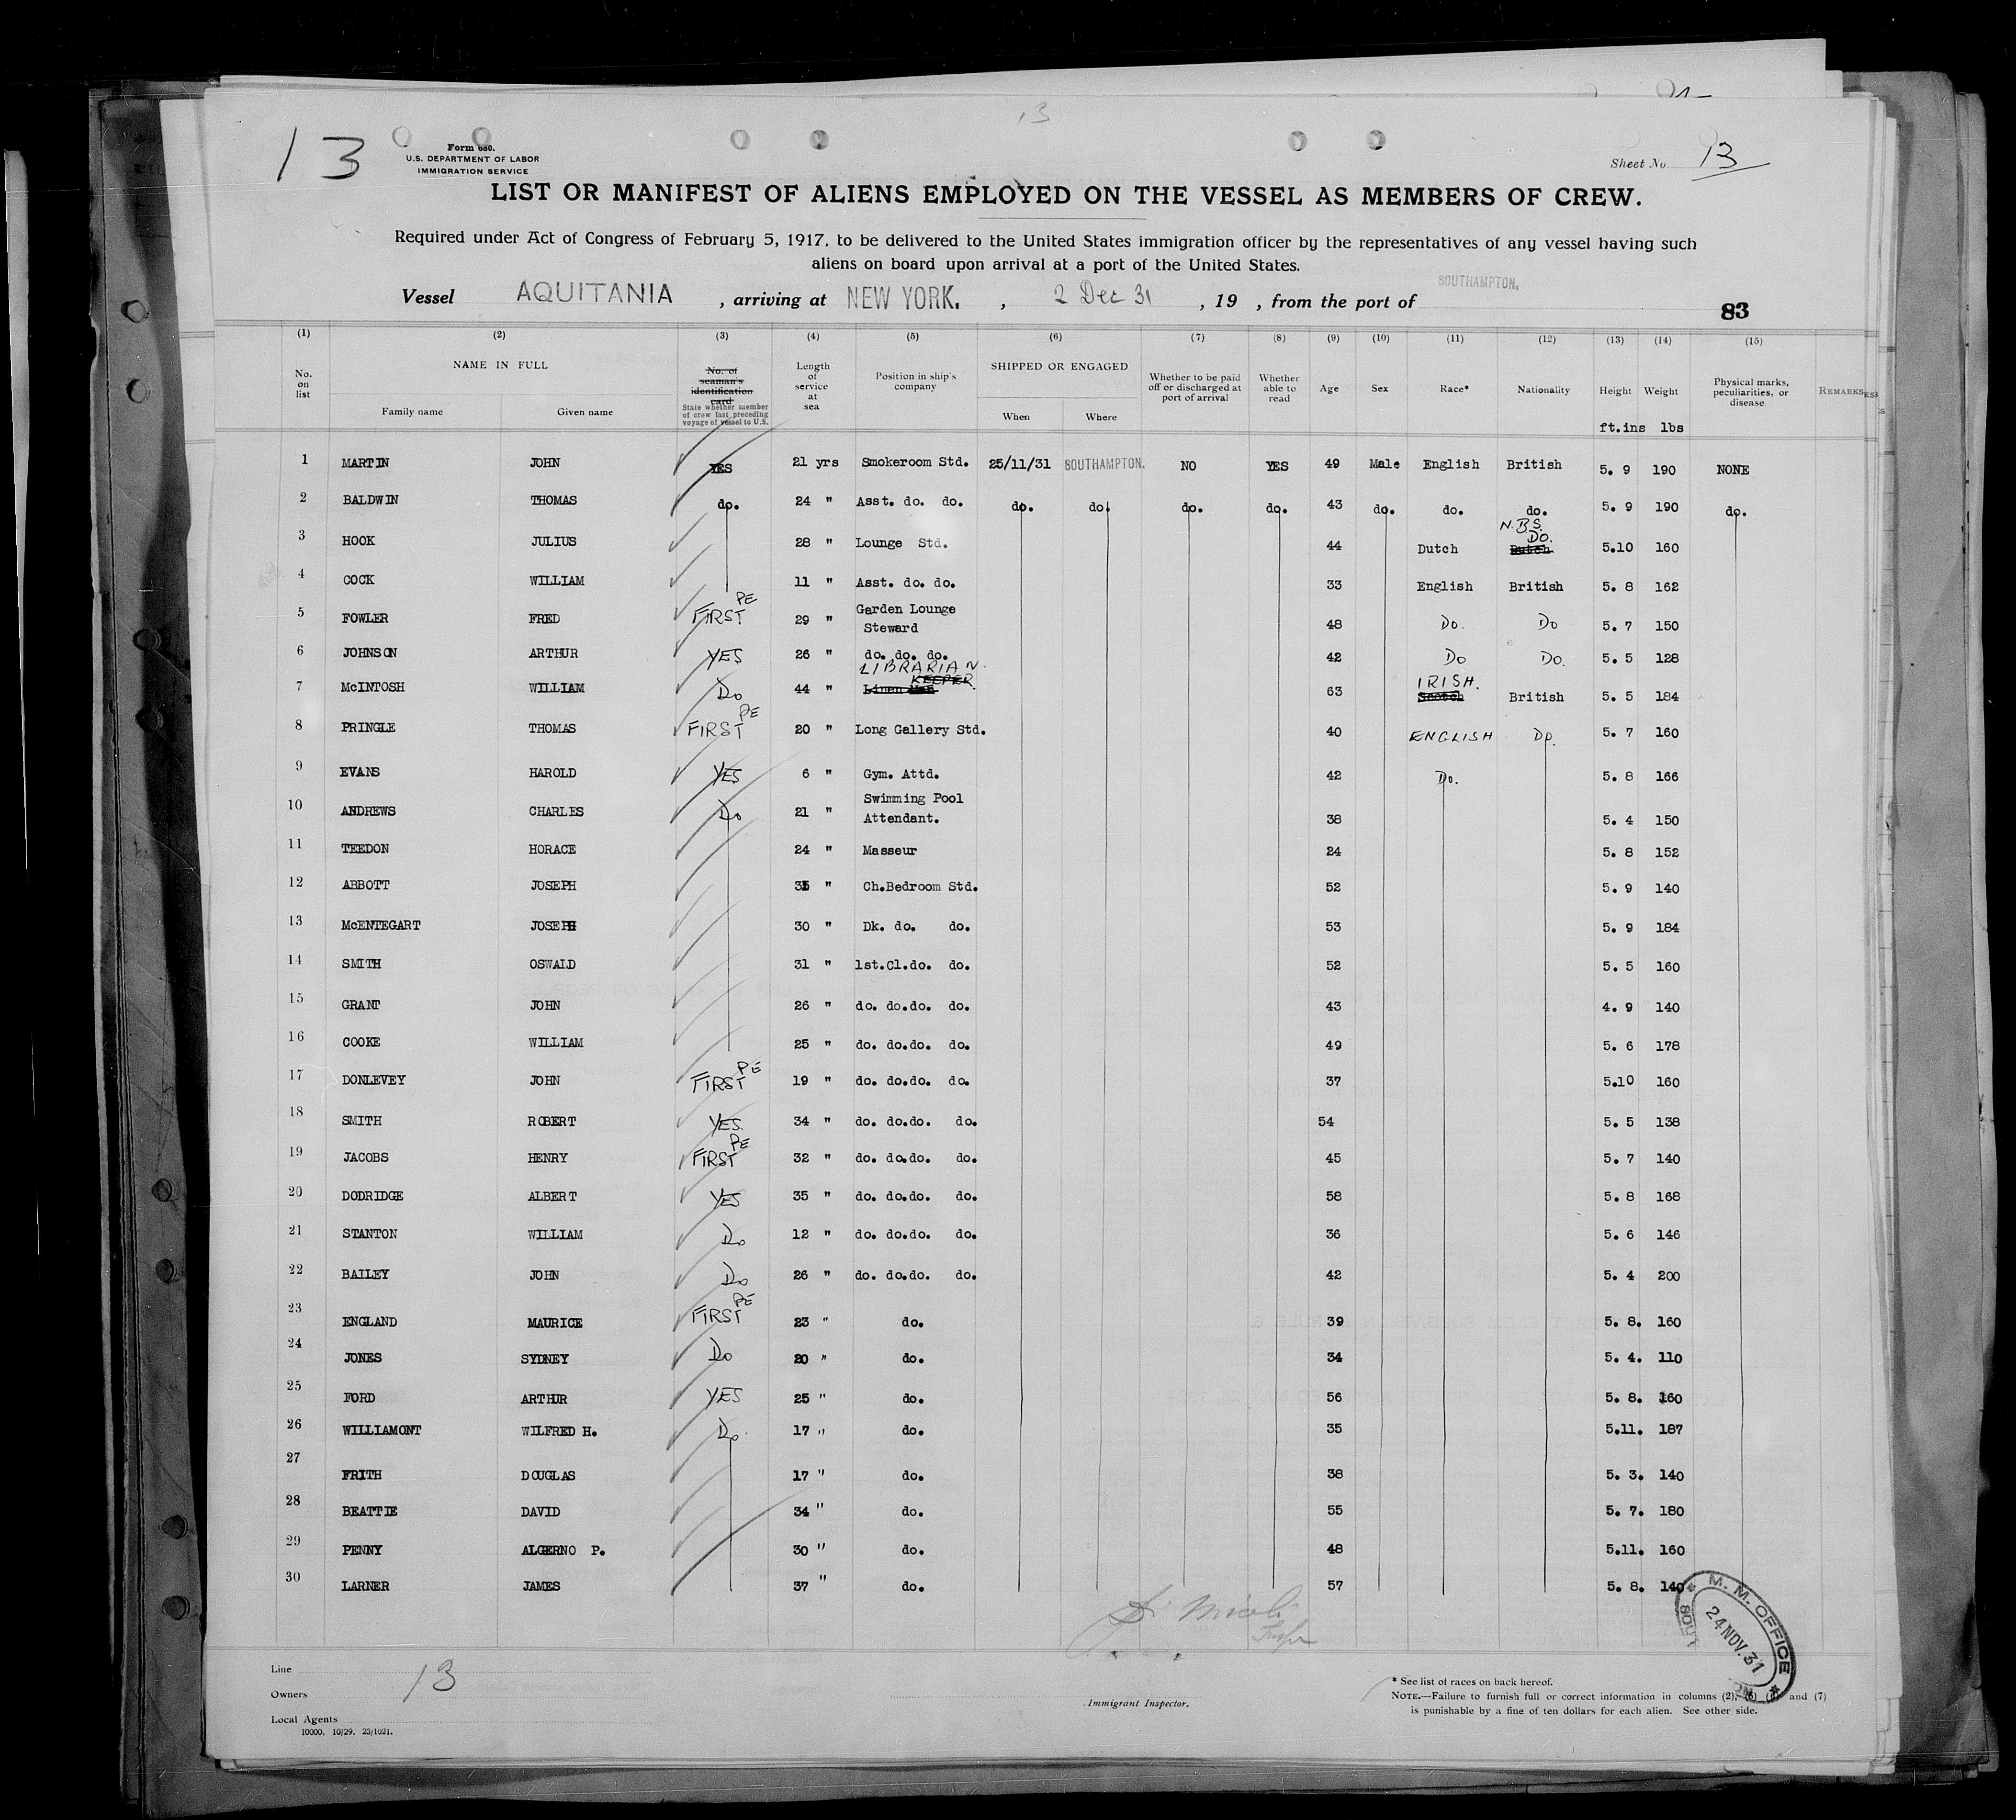 13
13
Form 680.
U.S. DEPARTMENT OF LABOR
IMMIGRATION SERVICE
Sheet No. 13
LIST OR MANIFEST OF ALIENS EMPLOYED ON THE VESSEL AS MEMBERS OF CREW.
Required under Act of Congress of February 5, 1917, to be delivered to the United States immigration officer by the representatives of any vessel having such
aliens on board upon arrival at a port of the United States.
Vessel AQUITANIA , arriving at NEW YORK. , 2 Dec 31 , 19 , from the port of SOUTHAMPTON.
83
(1) (2) (3) (4) (5) (6) (7) (8) (9) (10) (11) (12) (13) (14) (15)
No. on list NAME IN FULL Family name Given name No. of seaman's identification card State whether member of crew last preceding voyage of vessel to U.S. Length of service at sea Position in ship's company SHIPPED OR ENGAGED When Where Whether to be paid off or discharged at port of arrival Whether able to read Age Sex Race* Nationality Height Weight Physical marks, peculiarities, or disease REMARKS
ft.ins lbs
1 MARTIN JOHN YES 21 yrs Smokeroom Std. 25/11/31 SOUTHAMPTON. NO YES 49 Male English British 5. 9 190 NONE
2 BALDWIN THOMAS do. 24 " Asst. do. do. do. do. do. do. 43 do. do. do. 5. 9 190 do.
3 HOOK JULIUS 28 " Lounge Std. 44 Dutch Dutch N.B.S. DO. 5.10 160
4 COCK WILLIAM 11 " Asst. do. do. 33 English British 5. 8 162
5 FOWLER FRED FIRST PE 29 " Garden Lounge Steward 48 Do. Do 5. 7 150
6 JOHNSON ARTHUR YES 26 " do. do. do. 42 Do Do. 5. 5 128
7 McINTOSH WILLIAM Do 44 " LIBRARIAN. KEEPER Linen Man 63 IRISH. Scotch British 5. 5 184
8 PRINGLE THOMAS FIRST PE 20 " Long Gallery Std. 40 ENGLISH Do. 5. 7 160
9 EVANS HAROLD YES 6 " Gym. Attd. 42 Do. 5. 8 166
10 ANDREWS CHARLES Do 21 " Swimming Pool Attendant. 38 5. 4 150
11 TEEDON HORACE 24 " Masseur 24 5. 8 152
12 ABBOTT JOSEPH 35 " Ch.Bedroom Std. 52 5. 9 140
13 McENTEGART JOSEPH 30 " Dk. do. do. 53 5. 9 184
14 SMITH OSWALD 31 " 1st.Cl.do. do. 52 5. 5 160
15 GRANT JOHN 26 " do. do.do. do. 43 4. 9 140
16 COOKE WILLIAM 25 " do. do.do. do. 49 5. 6 178
17 DONLEVEY JOHN FIRST PE 19 " do. do.do. do. 37 5.10 160
18 SMITH ROBERT YES. 34 " do. do.do. do. 54 5. 5 138
19 JACOBS HENRY FIRST PE 32 " do. do.do. do. 45 5. 7 140
20 DODRIDGE ALBERT YES 35 " do. do.do. do. 58 5. 8 168
21 STANTON WILLIAM Do 12 " do. do.do. do. 36 5. 6 146
22 BAILEY JOHN Do 26 " do. do.do. do. 42 5. 4 200
23 ENGLAND MAURICE FIRST PE 23 " do. 39 5. 8. 160
24 JONES SYDNEY Do 20 " do. 34 5. 4. 110
25 FORD ARTHUR YES 25 " do. 56 5. 8. 160
26 WILLIAMONT WILFRED H. Do. 17 " do. 35 5.11. 187
27 FRITH DOUGLAS 17 " do. 38 5. 3. 140
28 BEATTIE DAVID 34 " do. 55 5. 7. 180
29 PENNY ALGERNO P. 30 " do. 48 5.11. 160
30 LARNER JAMES 37 " do. 57 5. 8. 140
M. M. OFFICE
24 NOV. 31
Line 13
Owners
Local Agents
10000. 10/29. 23/1021.
Immigrant Inspector.
* See list of races on back hereof.
NOTE.—Failure to furnish full or correct information in columns (2), (6) and (7)
is punishable by a fine of ten dollars for each alien. See other side.